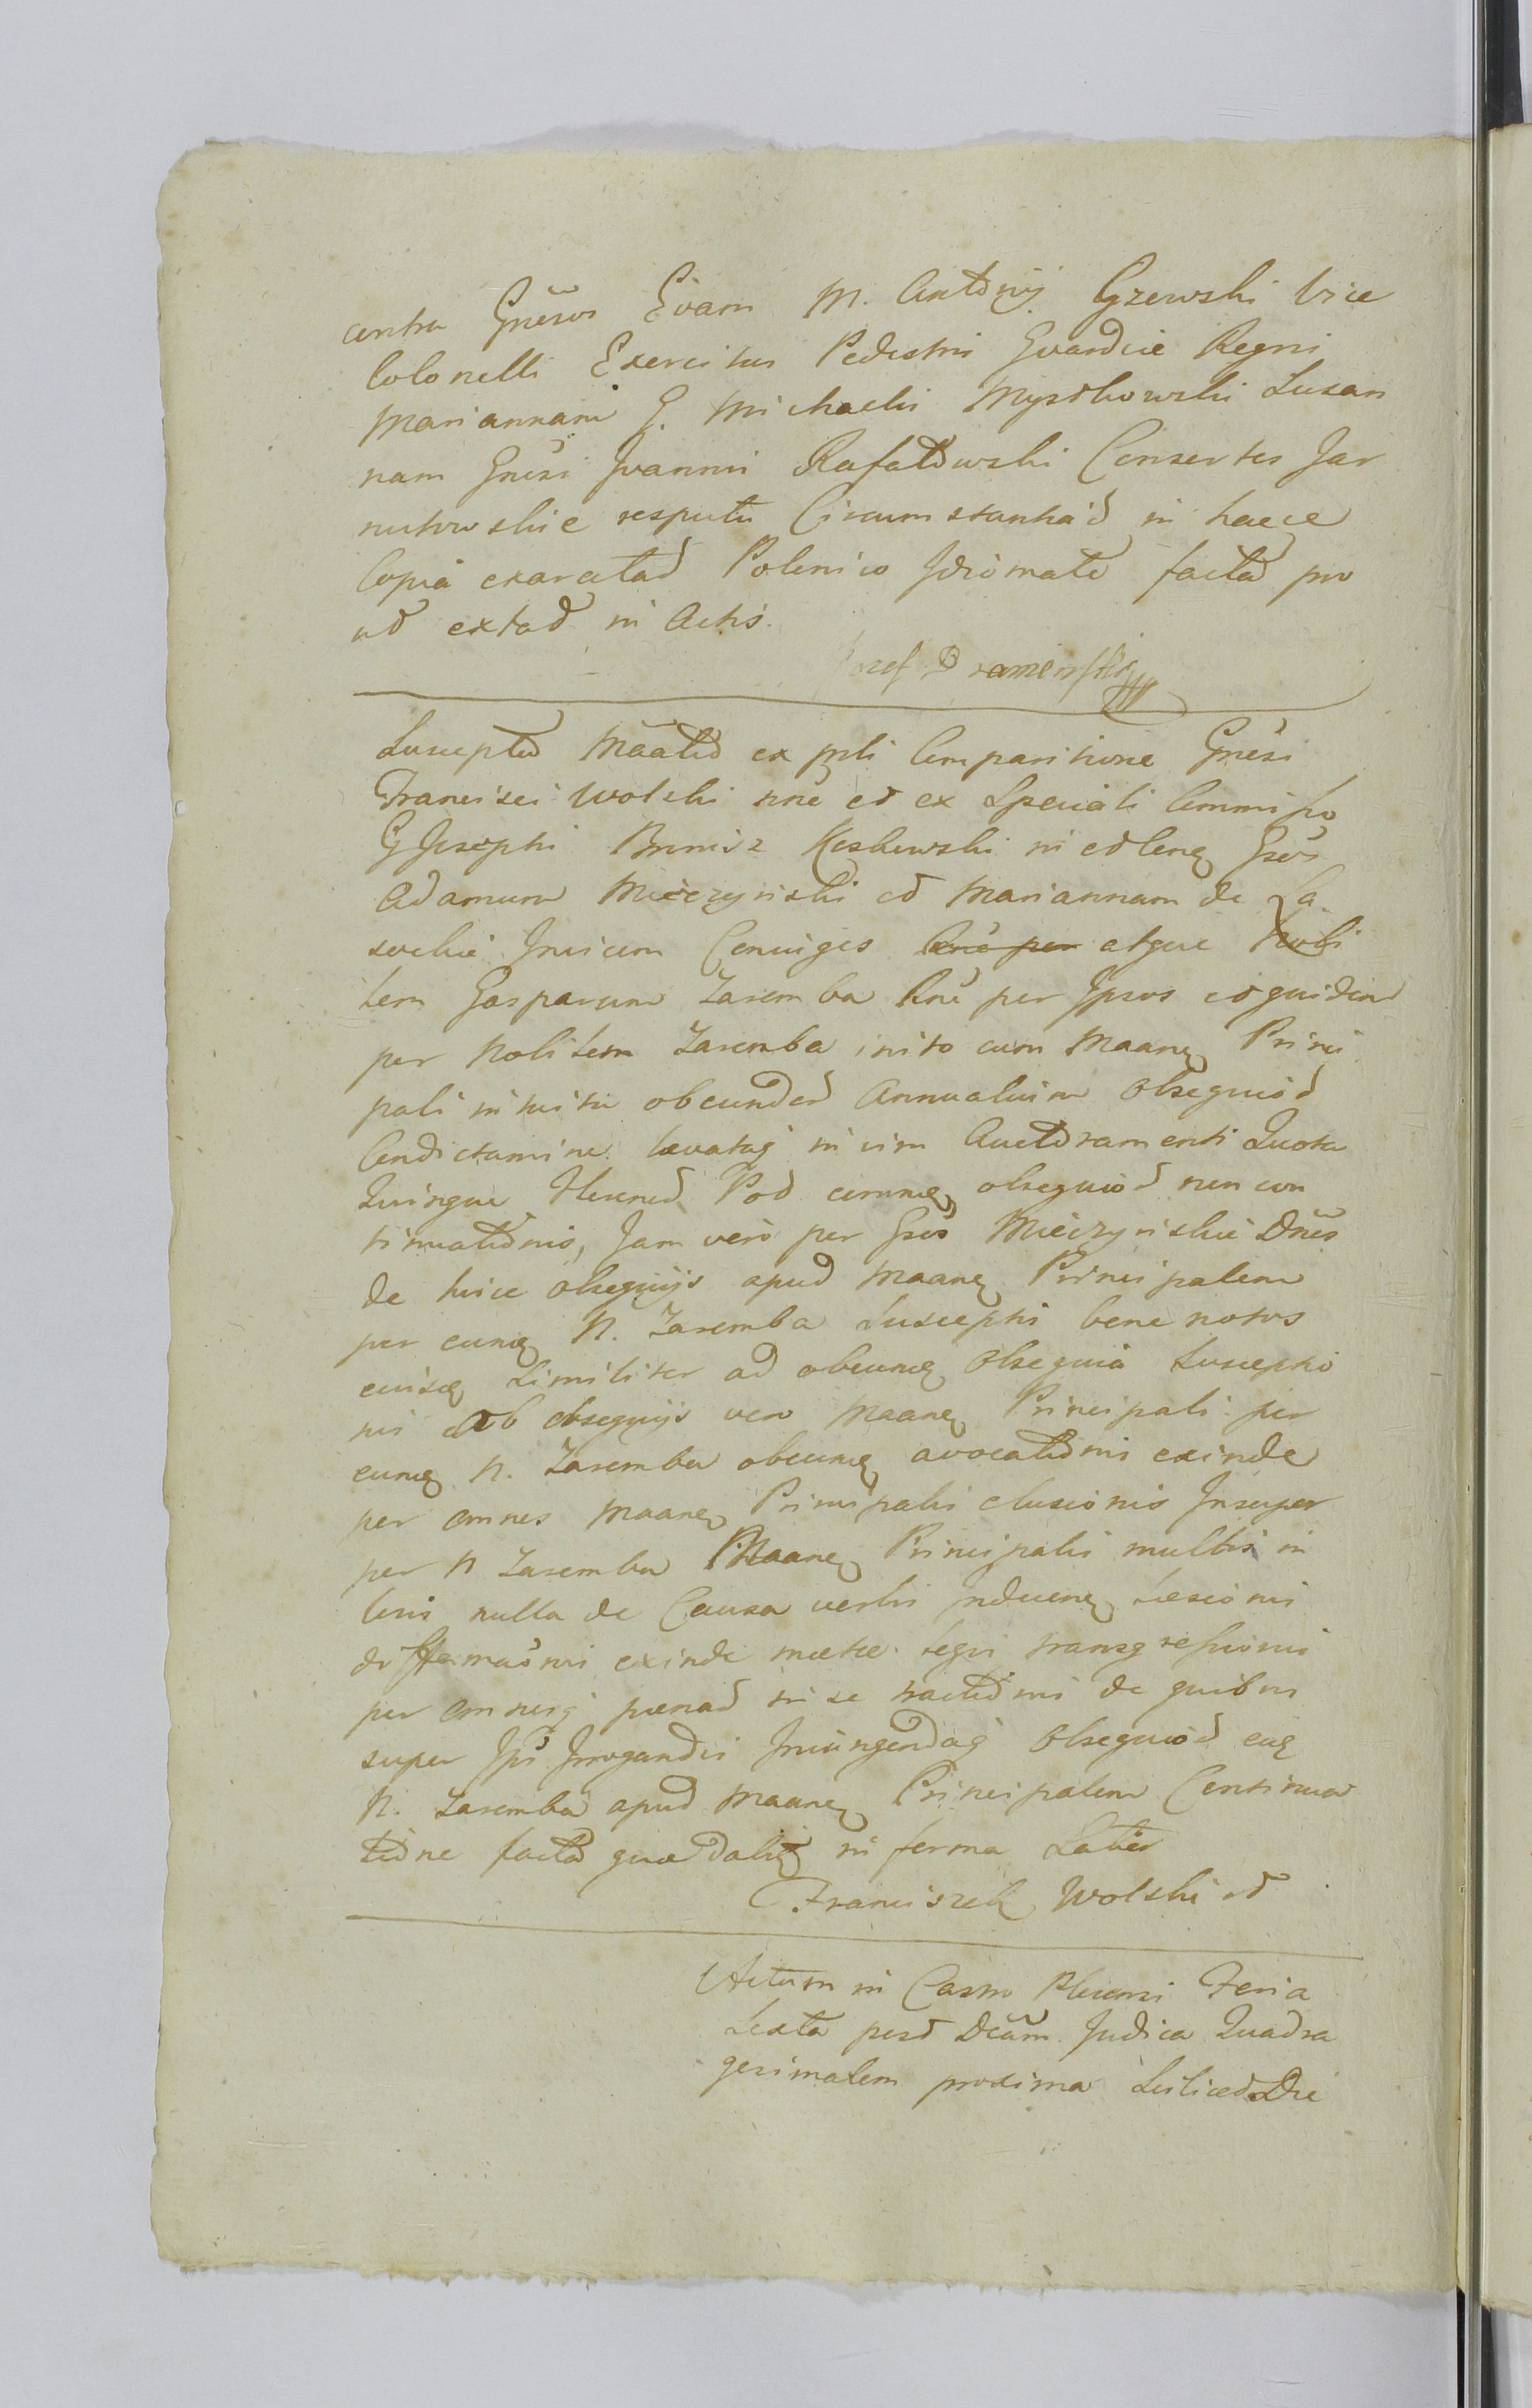 contra Gnesos Evam M. Antonij Gzewski Vice
Colonelli Exercitus Pedestri Gvardiae Regni
Mariannam G. Michaelis Myszkowski Susan
nam Gnesi Joannis Rafałowski Consortes Jar
nutowskie respectu Circumstantiar in haece
Copia exaratar Polonico Idiomate facta pro
ut extat in Actis.
Jozef
Susceptio Maãtio ex prli Comparitione Gnesi
Francisci Wolski nne et ex Speciali Commisso
G Josephi Bonisz Koskowski in et conq Gsos
Adamum Mieczynski et Mariannam de La
sockie Invicem Coniuges atque Nobi
lem Gasparum Zaremba Rne per Ipsos et quidem
per Nolitem Zaremba inito cum Maane Princi
pali intuitu obeundor Annualium Obsequior
Condictamine levataq in vim Auctoramenti Quota
Quinque Flrenor Pol eorumq obsequior non con
tinuationis, Jam vero per Gsos Mieczynskie Dnos
de hice obsequijs apud Maane Principalem
per eunq N. Zaremba Susceptis bene notos
eiusq Similiter ad obeunq Obsequia Susceptio
nis ab obsequijs vero Maane Principali per
eunq N. Zaremba obeunq avocationis exinde
per omnes Maane Principalis elusionis Insuper
per N Zaremba Maane Principalis multis in
locis nulla de Causa verbis Inducenq Laesionis
diffamaonis exinde metae legis transgressionis
per omnesq paenar in se tractionis de quibus
super Ips Irrogandis Iniungendaq Obsequior euq
N. Zaremba apud Maane Principalem Continua
tione facta quaedaliq in forma Latior
Franciszek Wolski
Actum in Castro Plocensi Feria
Sexta post Dcam Judica Quadra
gesimalem proxima Scilicet Die